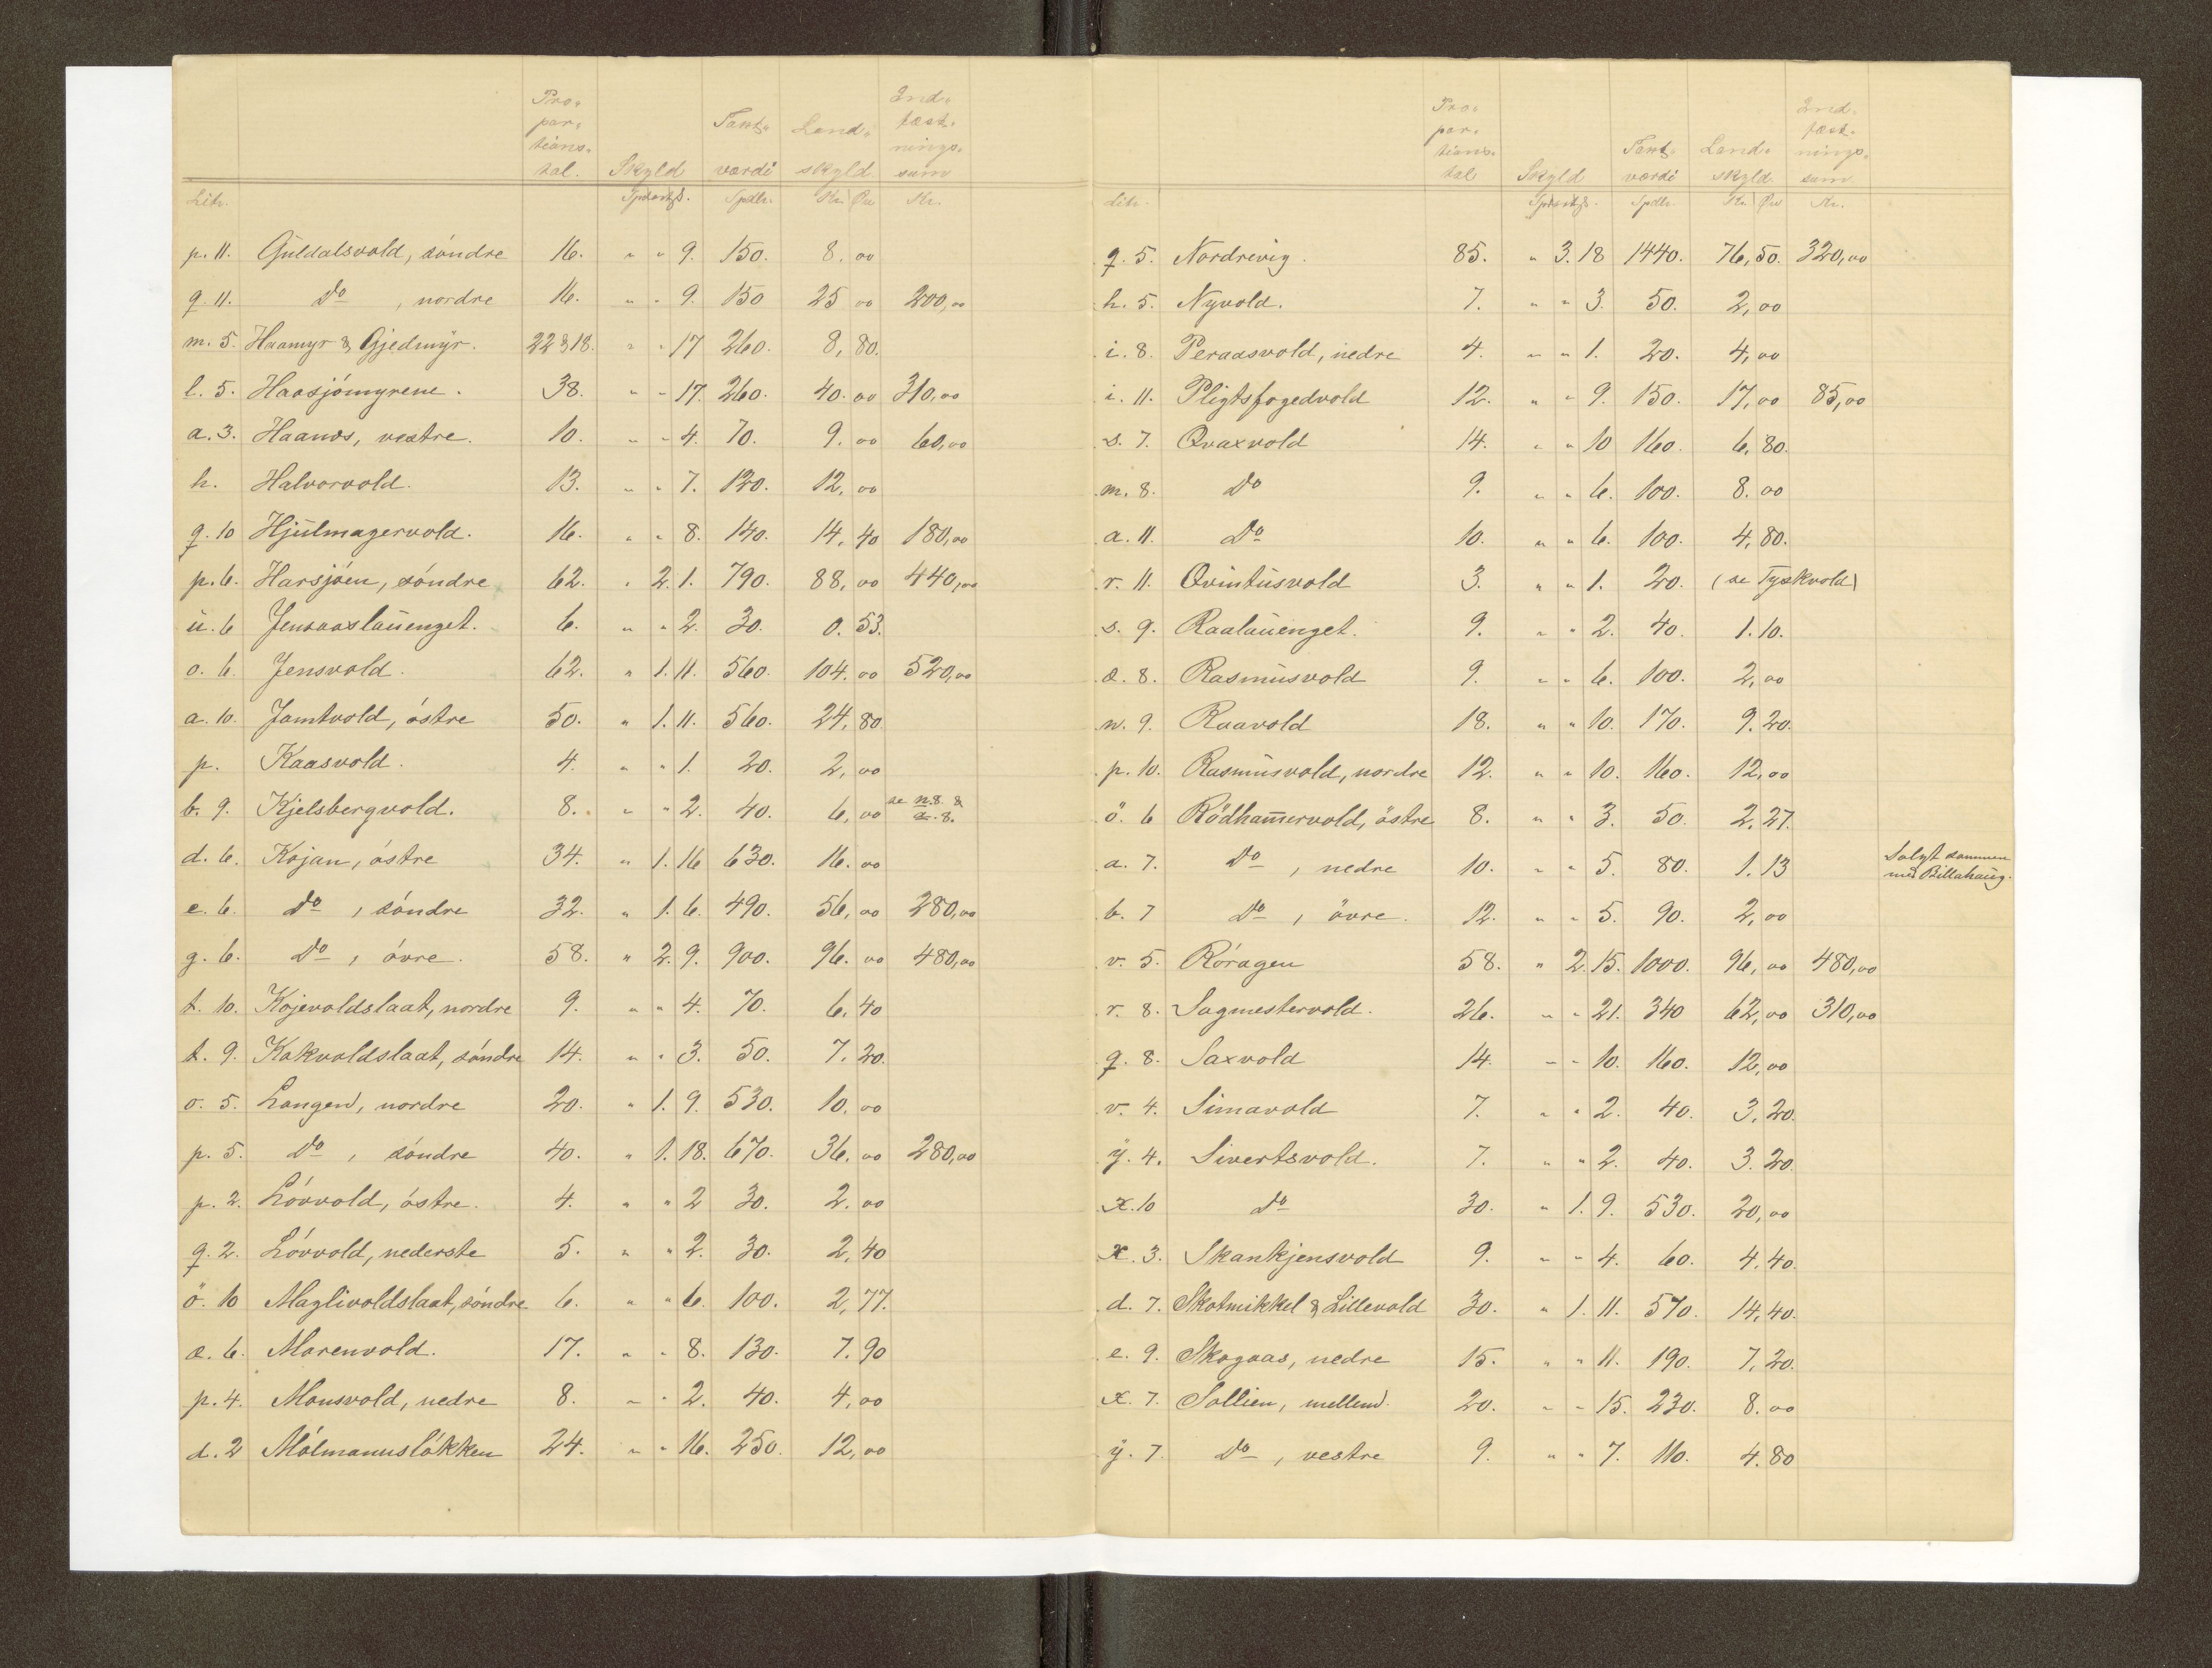 Pro-
por-
tions-
tal.
Skyld
Taxt-
værdi
Land-
skyld
Ind-
fæst-
nings-
sum
Litr. Spdlr. Kr. Øre Kr.
p. 11. Guldalsvold, söndre 16. " " 9. 150. 8,00
q. 11. do , nordre 16. " " 9. 150 25 00 200,00
m. 5. Haamyr & Gjedmyr. 22&18. " " 17 260. 8,80.
l. 5. Haasjömyrene. 38. " " 17. 260. 40.00 310,00
a. 3. Haanæs, vestre. 10. " " 4. 70. 9.00 60,00
h. Halvorvold. 13. " " 7. 120. 12,00
q. 10 Hjulmagervold. 16. " " 8. 140. 14,40 180,00
p. 6. Harsjöen, söndre 62. " 2. 1. 790. 88,00 440,00
u. 6 Jensaaslauenget. 6. " " 2. 30. 0.53.
o. 6. Jensvold. 62. " 1. 11. 560. 104.00 520,00
a. 10. Jamtvold, östre 50. " 1. 11. 560. 24,80.
p. Kaasvold. 4. " " 1. 20. 2,00
b. 9. Kjelsbergvold. 8. " " 2. 40. 6,00 se n.8. & æ.8.
d. 6. Kojan, östre 34. " 1. 16 630. 16.00
e. 6. do , söndre 32. " 1. 6. 490. 56,00 280,00
g. 6. do , övre. 58. " 2. 9. 900. 96.00 480,00
t. 10. Kojevoldslaat, nordre 9. " " 4. 70. 6.40
t. 9. Kokvoldslaat, söndre 14. " " 3. 50. 7.20.
o. 5. Langen, nordre 20. " 1. 9. 530. 10.00
p. 5. do , söndre 40. " 1. 18. 670. 36.00 280,00
p. 2. Lövvold, östre. 4. " " 2 30. 2.00
q. 2. Lövvold, nederste 5. " " 2. 30. 2,40
ö. 10 Maglivoldslaat, söndre 6. " " 6. 100. 2,77.
æ. 6. Marenvold. 17. " " 8. 130. 7.90
p. 4. Monsvold, nedre 8. " " 2. 40. 4,00
d. 2 Mölmannslökken 24. " " 16. 250. 12,00
Pro-
por-
tions-
tal
Skyld
Taxt-
værdi
Land-
skyld
Ind-
fæst-
nings-
sum
Litr. Spdlr. Kr. Øre Kr.
q. 5. Nordrevig. 85. " 3. 18 1440. 76,50. 320,00
h. 5. Nyvold. 7. " " 3. 50. 2,00
i. 8. Peraasvold, nedre 4. " " 1. 20. 4,00
i. 11. Pligtsfogedvold 12. " " 9. 150. 17,00 85,00
s. 7. Qvaxvold 14. " " 10 160. 6,80.
m. 8. do 9. " " 6. 100. 8.00
a. 11. do 10. " " 6. 100. 4,80.
r. 11. Qvintusvold 3. " " 1. 20. (se Tyskvold)
s. 9. Raalauenget. 9. " " 2. 40. 1.10.
æ. 8. Rasmusvold 9. " " 6. 100. 2,00
n. 9. Raavold 18. " " 10. 170. 9.20.
p. 10. Rasmusvold, nordre 12. " " 10. 160. 12,00
ö. 6 Rödhammervold, östre 8. " " 3. 50. 2,27.
a. 7. do , nedre 10. " " 5. 80. 1.13 Solgt sammen
med Billahaug.
b. 7 do , övre. 12. " " 5. 90. 2,00
v. 5. Röragen 58. " 2. 15. 1000. 96,00 480,00
r. 8. Sagmestervold. 26. " " 21. 340 62,00 310,00
q. 8. Saxvold 14. " " 10. 160. 12,00
v. 4. Simavold 7. " " 2. 40. 3,20.
y. 4. Sivertsvold. 7. " " 2. 40. 3.20.
x. 10 do 30. " 1. 9. 530. 20,00
x. 3. Skankjensvold 9. " " 4. 60. 4,40.
d. 7. Skotmikkel & Lillevold 30. " 1. 11. 570. 14,40.
e. 9. Skogaas, nedre 15. " " 11. 190. 7,20.
x. 7. Sollien, mellem. 20. " " 15. 230. 8.00
y. 7. do , vestre 9. " " 7. 110. 4.80